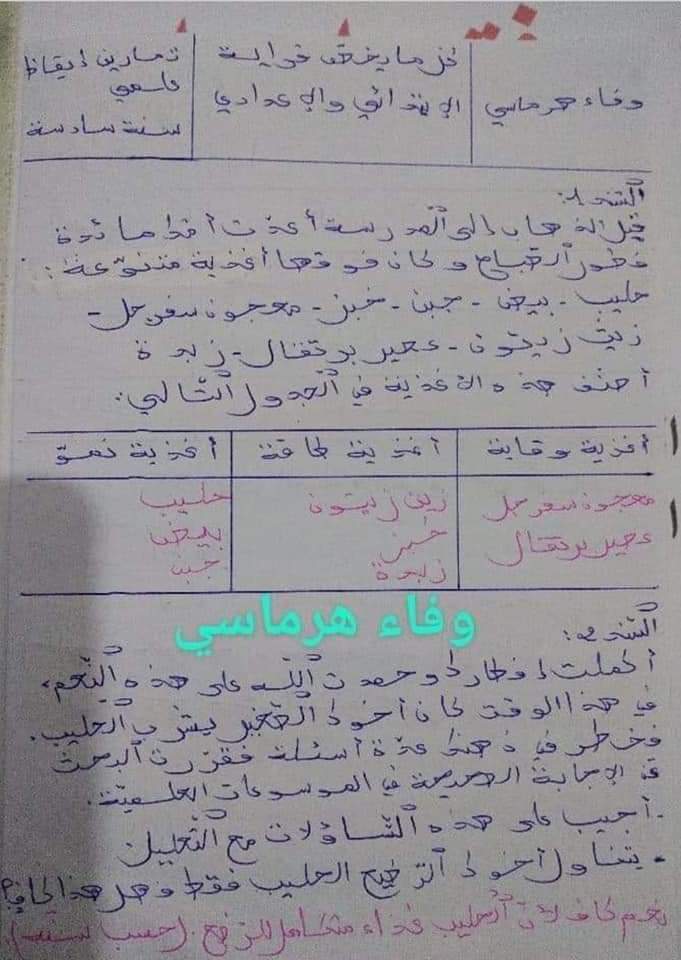 وفاء هرماسي
كل ما يخص قراية
الإبتدائي والإعدادي
تمارين إيقاظ
علمي
سنة سادسة
السّند 1:
قبل الذهاب إلى المدرسة أعدّت أمّك مائدة
فطور الصّباح وكان فوقها أغذية متنوّعة:
حليب - بيض - جبن - خبز - معجون سفرجل -
زيت زيتون - عصير برتقال - زبدة
أصنّف هذه الأغذية في الجدول التّالي:
أغذية وقاية
أغذية طاقة
أغذية نموّ
معجون سفرجل
زيت زيتون
حليب
عصير برتقال
خبز
بيض
زبدة
جبن
وفاء هرماسي
السّند 2:
أكملت إفطارك وحمدت اللّه على هذه النّعم،
في هذا الوقت كان أخوك الصّغير يشرب الحليب.
فخطر في ذهنك عدّة أسئلة فقرّرت البحث
عن الإجابة الصحيحة في الموسوعات العلميّة.
- أجيب على هذه التّساؤلات مع التّعليل
- يتناول أخوك الرّضيع الحليب فقط فهل هذا كاف؟
نعم كاف لأنّ الحليب غذاء متكامل للرضع. (حسب سنه).